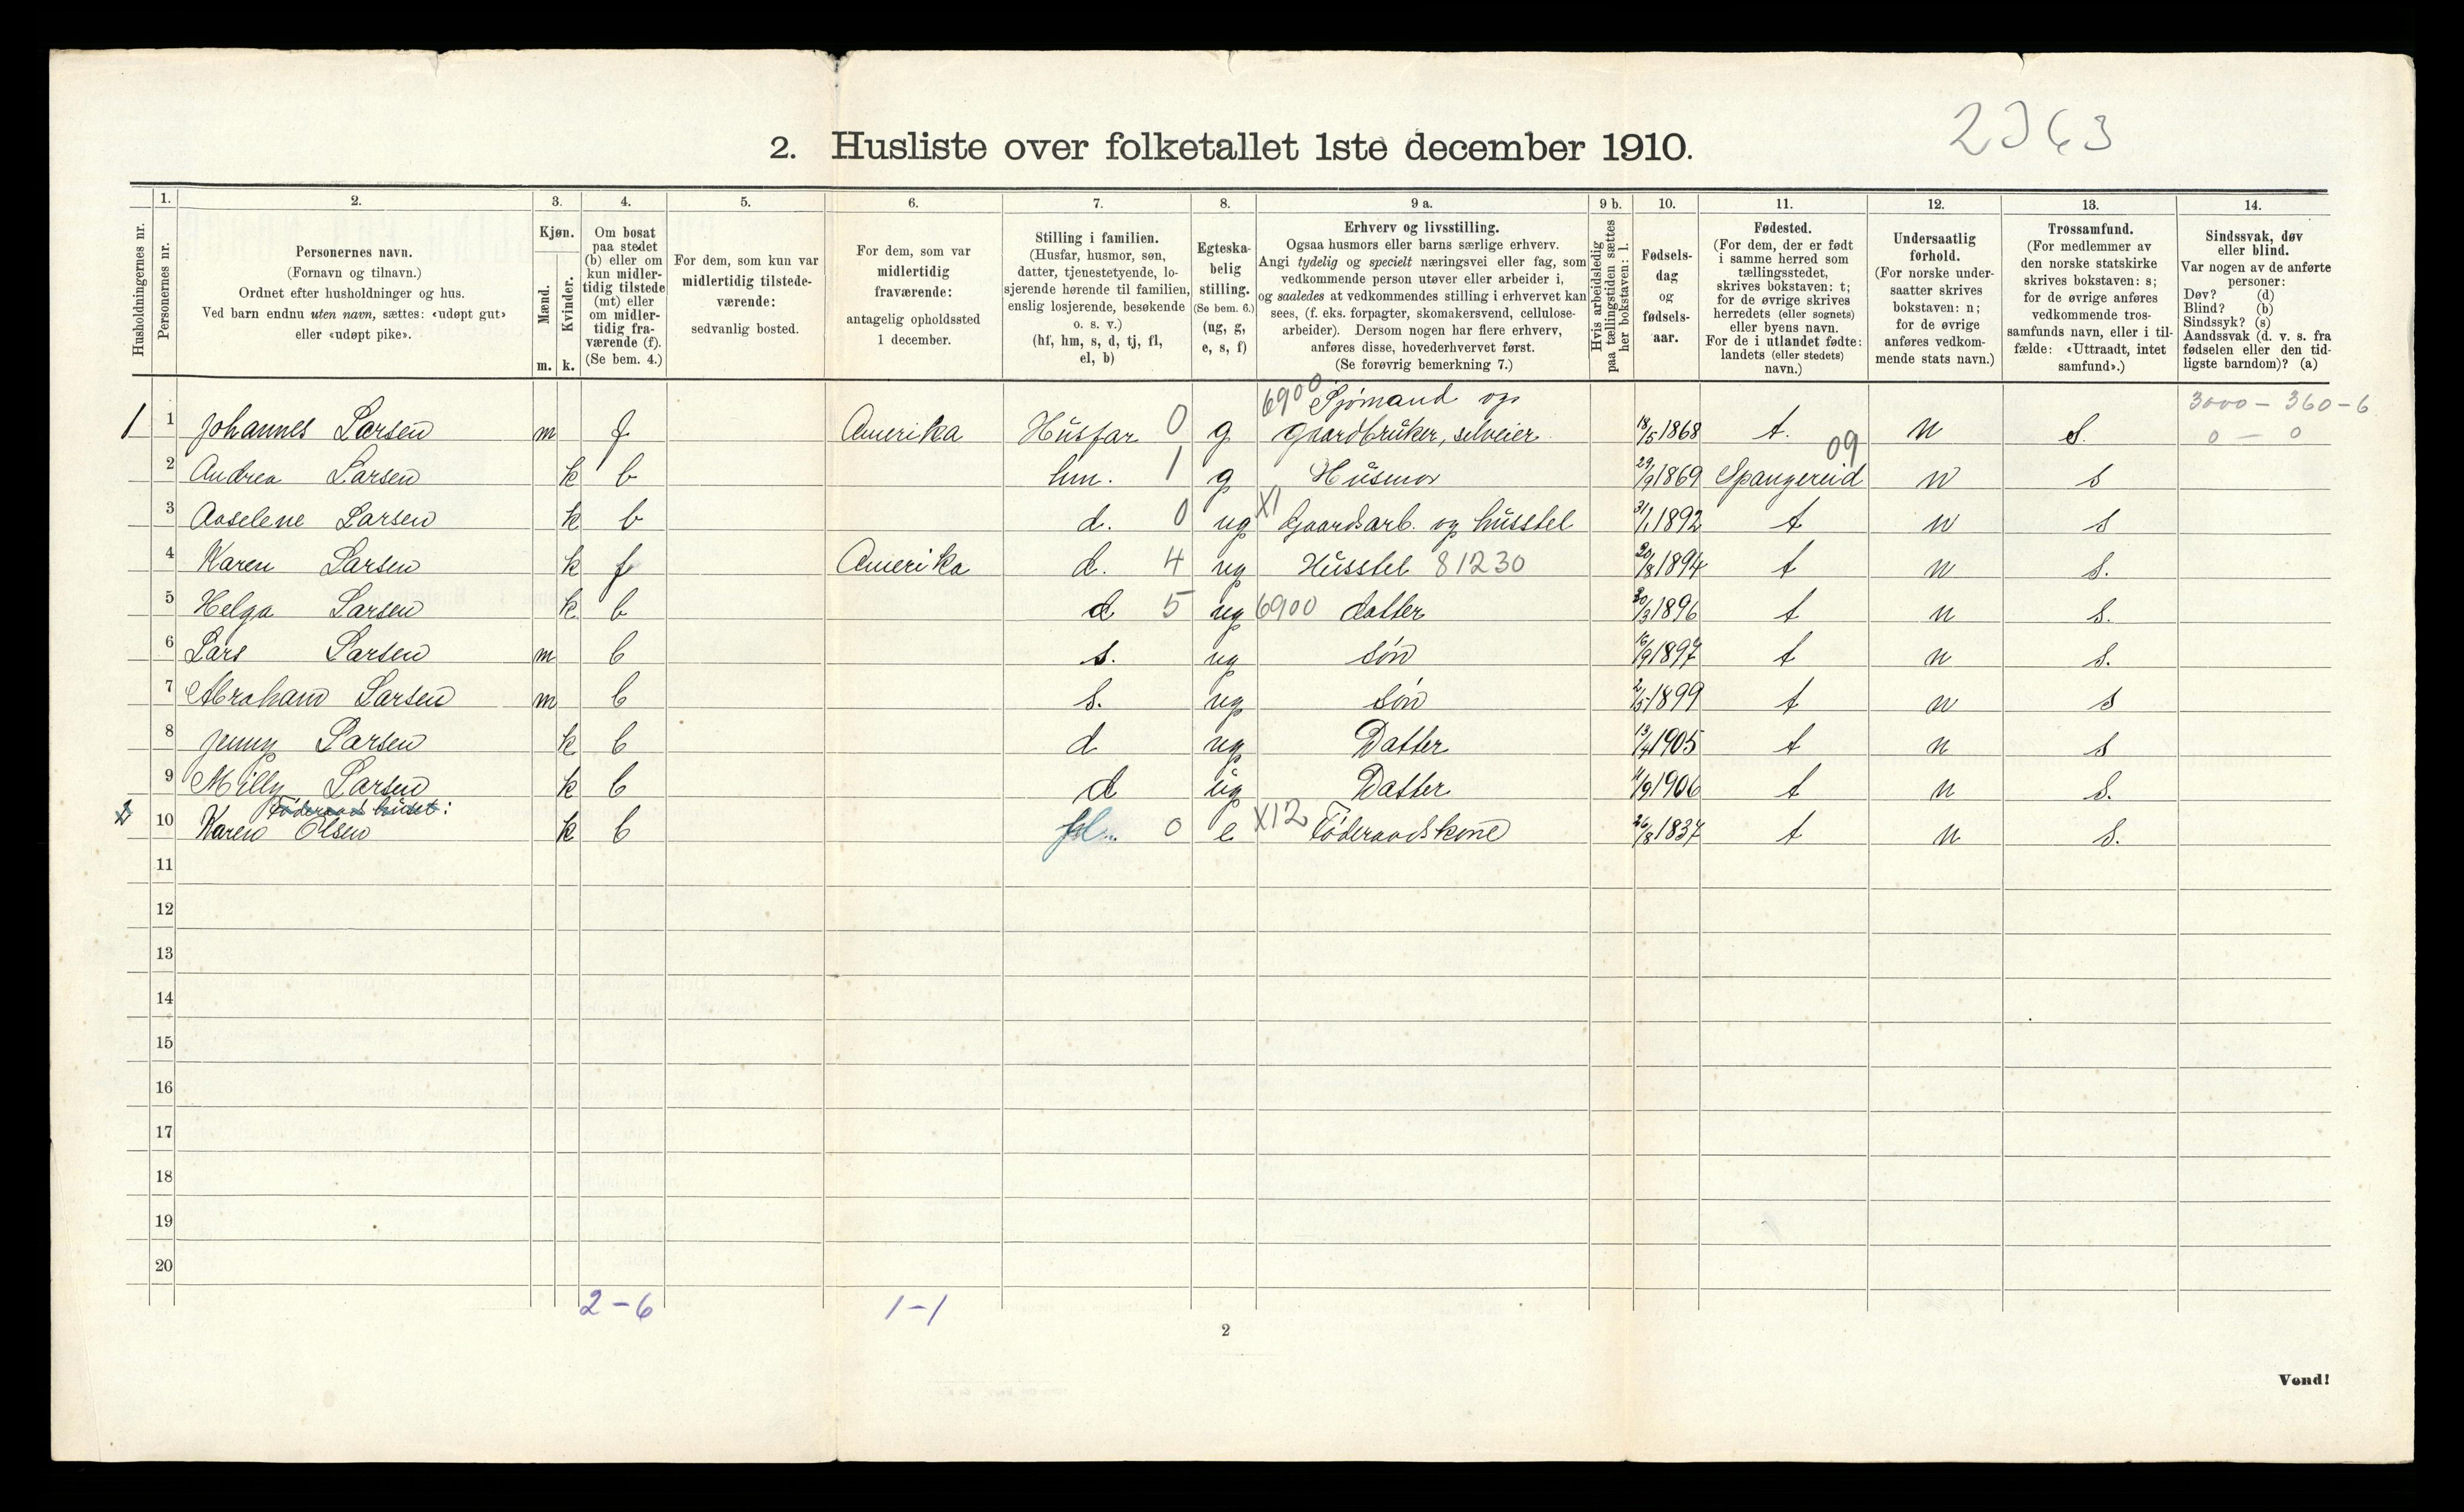 2. Husliste over folketallet 1ste december 1910.
Husholdningernes nr.
1. Personernes nr.
2. Personernes navn.
(Fornavn og tilnavn.)
Ordnet efter husholdninger og hus.
Ved barn endnu uten navn, sættes: «udøpt gut»
eller «udøpt pike».
3. Kjøn.
Mænd. m.
Kvinder. k.
4. Om bosat
paa stedet
(b) eller om
kun midler-
tidig tilstede
(mt) eller
om midler-
tidig fra-
værende (f).
(Se bem. 4.)
5. For dem, som kun var
midlertidig tilstede-
værende:
sedvanlig bosted.
6. For dem, som var
midlertidig
fraværende:
antagelig opholdssted
1 december.
7. Stilling i familien.
(Husfar, husmor, søn,
datter, tjenestetyende, lo-
sjerende hørende til familien,
enslig losjerende, besøkende
o. s. v.)
(hf, hm, s, d, tj, fl,
el, b)
8. Egteska-
belig
stilling.
(Se bem. 6.)
(ug, g,
e, s, f)
9 a. Erhverv og livsstilling.
Ogsaa husmors eller barns særlige erhverv.
Angi tydelig og specielt næringsvei eller fag, som
vedkommende person utøver eller arbeider i,
og saaledes at vedkommendes stilling i erhvervet kan
sees, (f. eks. forpagter, skomakersvend, cellulose-
arbeider). Dersom nogen har flere erhverv,
anføres disse, hovederhvervet først.
(Se forøvrig bemerkning 7.)
9 b. Hvis arbeidsledig
paa tællingstiden sættes
her bokstaven: l.
10. Fødsels-
dag
og
fødsels-
aar.
11. Fødested.
(For dem, der er født
i samme herred som
tællingsstedet,
skrives bokstaven: t;
for de øvrige skrives
herredets (eller sognets)
eller byens navn.
For de i utlandet fødte:
landets (eller stedets)
navn.)
12. Undersaatlig
forhold.
(For norske under-
saatter skrives
bokstaven: n;
for de øvrige
anføres vedkom-
mende stats navn.)
13. Trossamfund.
(For medlemmer av
den norske statskirke
skrives bokstaven: s;
for de øvrige anføres
vedkommende tros-
samfunds navn, eller i til-
fælde: «Uttraadt, intet
samfund».)
14. Sindssvak, døv
eller blind.
Var nogen av de anførte
personer:
Døv? (d)
Blind? (b)
Sindssyk? (s)
Aandssvak (d. v. s. fra
fødselen eller den tid-
ligste barndom)? (a)
6900 Sjømand og 3000 - 360 - 6
1 1 Johannes Larsen m f Amerika Husfar 0 g gaardbruker, selveier 18/5 1868 t. n s. 0 - 0
09
2 Andrea Larsen k b hm. 1 g Husmor 29/9 1869 Spangereid n s
3 Aaselene Larsen k b d. 0 ug XI Gaardsarb. og husstel 31/1 1892 t n s
4 Karen Larsen k f Amerika d. 4 ug Husstel 81230 20/8 1894 t n s.
5 Helga Larsen k b d 5 ug 6900 datter 30/3 1896 t n s.
6 Lars Larsen m b s. ug søn 16/9 1897 t n s.
7 Abraham Larsen m b s. ug søn 2/5 1899 t n s
8 Jenny Larsen k b d ug Datter 13/4 1905 t n s
9 Milly Larsen k b d ug Datter 11/9 1906 t n s.
Føderaads huset:
2 10 Karen Olsen k b fl. 0 e X12 Føderaadskone 26/8 1837 t n s.
11
12
13
14
15
16
17
18
19
20
2-6 1-1
2
Vend!